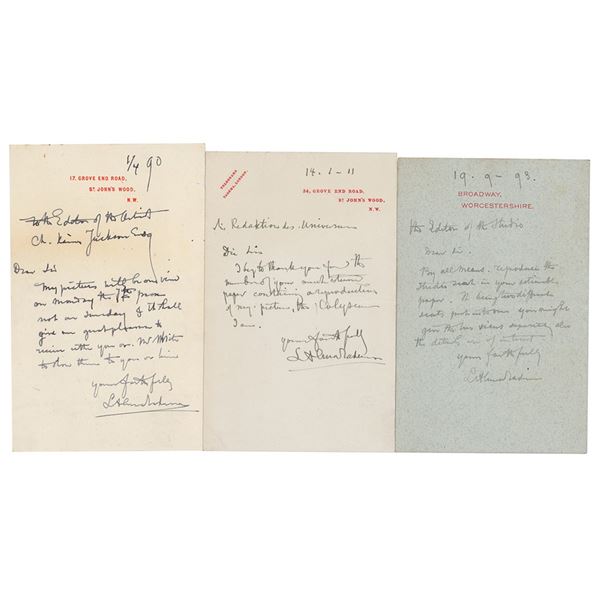 1/4 90
17, GROVE END ROAD,
ST. JOHN'S WOOD,
N.W.
to the Editor of the Artist
Jackson Esq
Dear Sir
My pictures will be on view
on Monday the 7th prox
not on Sunday & it shall
give me great pleasure to
receive either you or Mr White
to show them to you or him
yours faithfully
L Alma Tadema
14.1-11
TELEGRAMS
TADEMA, LONDON.
34, GROVE END ROAD,
ST JOHN'S WOOD,
N.W.
Redaktion des Universum
Dear Sir
I beg to thank you for the
number of your much esteemed
paper containing a reproduction
of my picture, the Colyseum
I am.
yours faithfully
L Alma Tadema
19-9-93.
BROADWAY,
WORCESTERSHIRE.
the Editor of the Studio
Dear Sir.
By all means reproduce the
seat in your
paper. It being two different
seats put into one you might
give the two views separately also
the details are of interest
yours faithfully
L Alma Tadema